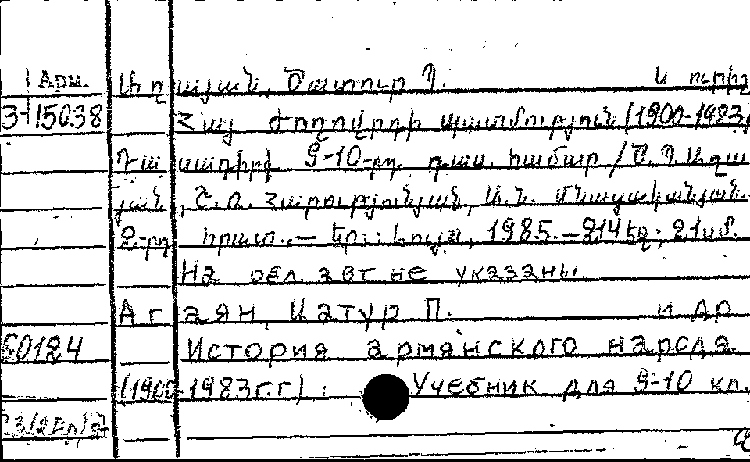 Арм. Աղայան, Ծատուր Պ. և ուրիշ
3-15038 Հայ ժողովրդի պատմություն (1900-1983)
Դասագիրք 9-10-րդ դաս. համար / Ծ.Պ. Աղա
յան, Շ.Ռ. Հարությունյան, Ա.Ն. Մնացականյան.
2-րդ հրատ. — Եր.: Լույս, 1985. — 214 էջ; 21 սմ.
На обл. авт. не указаны.
Агаян, Цатур П. и др
60184 История армянского народа
(1900-1983 г.г) : Учебник для 9-10 кл.